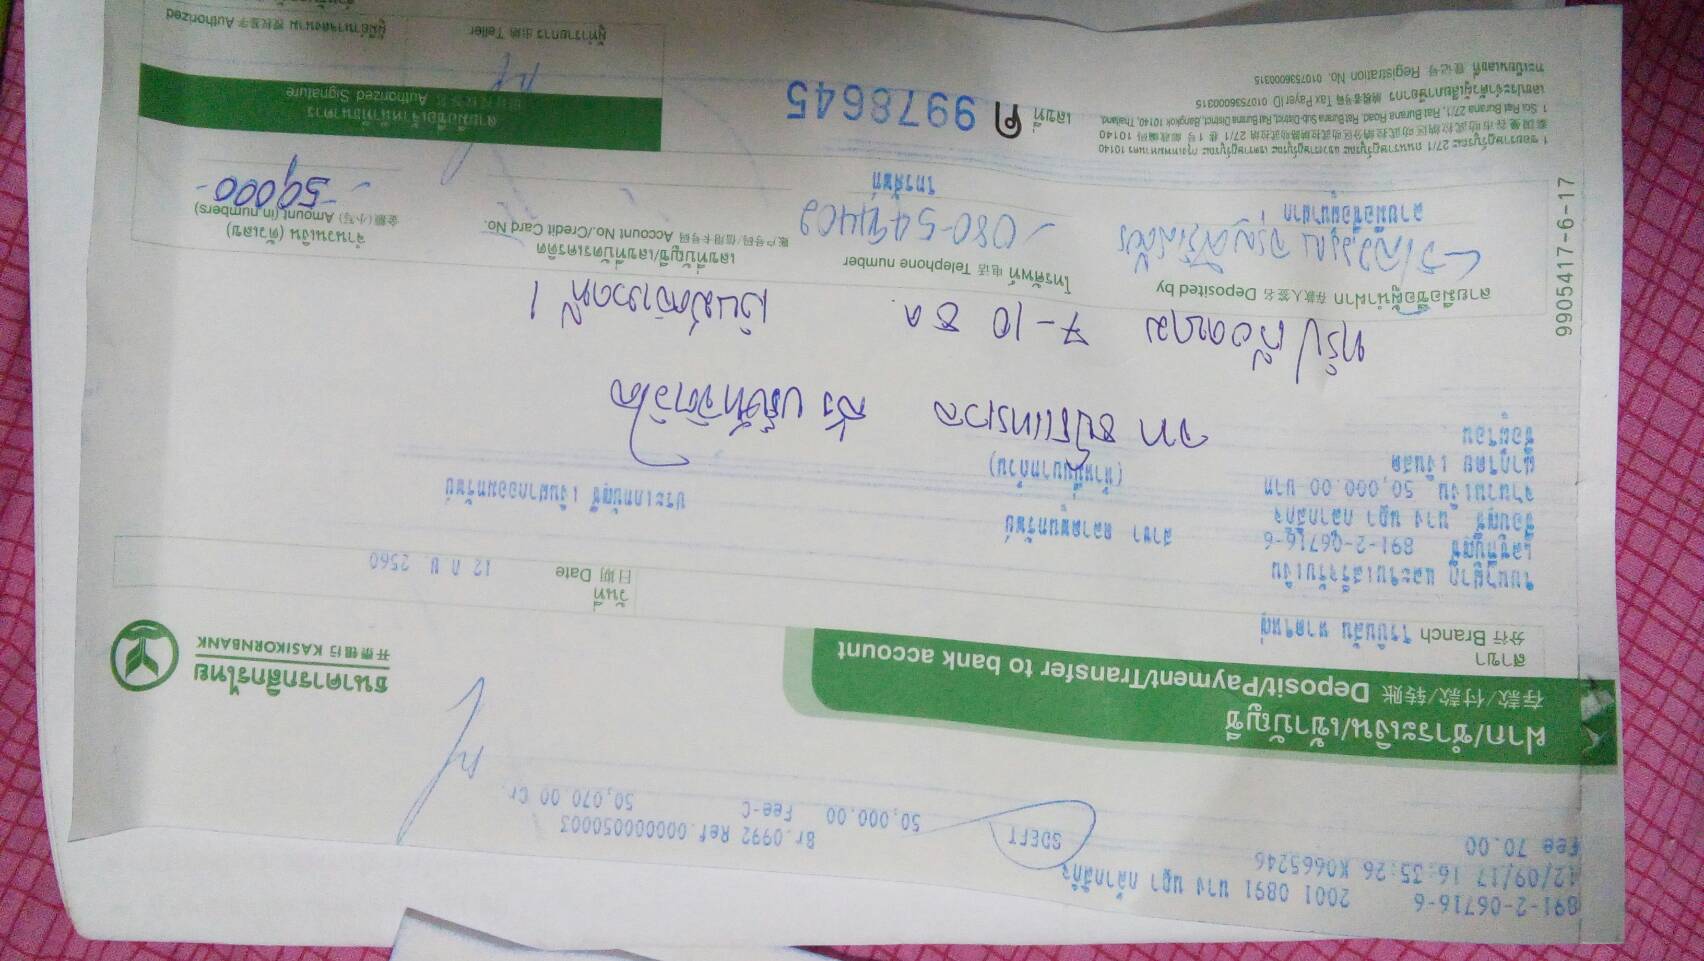 891-2-06716-6 2001 0891 นาง นฎา กล้ากสิกิจ
12/09/17 16:35:26 K0665246 SDEFT Br.0992 Ref.000000050003
Fee 70.00 50,000.00 Fee-C 50,070.00 Cr.
ฝาก/ชำระเงิน/เข้าบัญชี
存款/付款/转账 Deposit/Payment/Transfer to bank account
ธนาคารกสิกรไทย
开泰银行 KASIKORNBANK
สาขา
分行 Branch โรบินสัน หาดใหญ่
วันที่
日期 Date 12 ก.ย. 2560
ใบนำฝาก และใบเสร็จรับเงิน
เลขที่บัญชี 891-2-06716-6 สาขา ตลาดพูนทรัพย์
ชื่อบัญชี นาง นฎา กล้ากสิกิจ ประเภทบัญชี เงินฝากออมทรัพย์
จำนวนเงิน 50,000.00 บาท (ห้าหมื่นบาทถ้วน)
ฝากโดย เงินสด
ชื่อผู้โอน
จาก ส่ง บริษัท
ทริปเวียดนาม 7-10 ธ.ค. เงินมัดจำงวดที่ 1
9905417-6-17
ลายมือชื่อผู้นำฝาก 存款人签名 Deposited by
โทรศัพท์ 电话 Telephone number
เลขที่บัญชี/เลขที่บัตรเครดิต
账户号码/信用卡号码 Account No./Credit Card No.
จำนวนเงิน (ตัวเลข)
金额(小写) Amount (in numbers)
ลายมือชื่อผู้นำฝาก
โทรศัพท์
- 50,000 -
1 ซอยราษฎร์บูรณะ 27/1 ถนนราษฎร์บูรณะ แขวงราษฎร์บูรณะ เขตราษฎร์บูรณะ กรุงเทพมหานคร 10140
泰国曼谷市叻武拉纳区叻武拉纳分区叻武拉纳路叻武拉纳 27/1 巷 1号 邮政编码 10140
1 Soi Rat Burana 27/1, Rat Burana Road, Rat Burana Sub-District, Rat Burana District, Bangkok 10140, Thailand.
เลขประจำตัวผู้เสียภาษีอากร 纳税者号码 Tax Payer ID 0107536000315
ทะเบียนเลขที่ 登记号 Registration No. 0107536000315
เลขที่ ค 9978645
ลายมือชื่อเจ้าหน้าที่ธนาคาร
Authorized Signature
ผู้ทำรายการ 出纳 Teller
ผู้มีอำนาจลงนาม 授权签字 Authorized